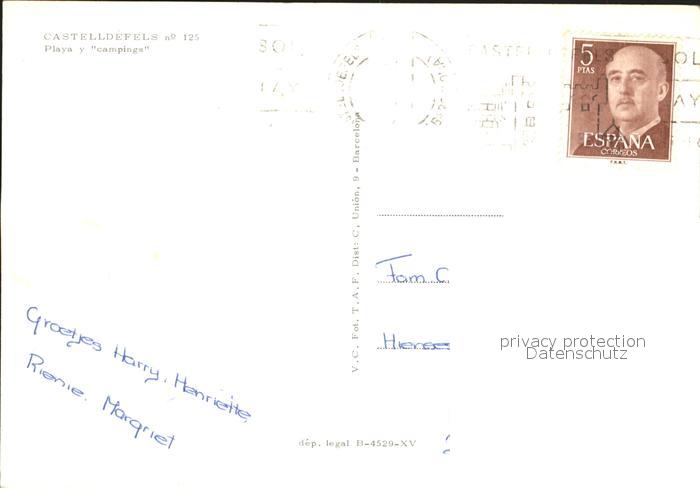 CASTELLDEFELS nº 125
Playa y "campings"
SOL
CASTELLDEFELS
SOL
5
PTAS
ESPAÑA
CORREOS
F.N.M.T.
V.C. Fot. T.A.F. Dist: C, Unión, 9 - Barcelona
Fam
privacy protection
Datenschutz
Groetjes Harry, Henriette,
Rienie, Margriet
dép. legal B-4529-XV